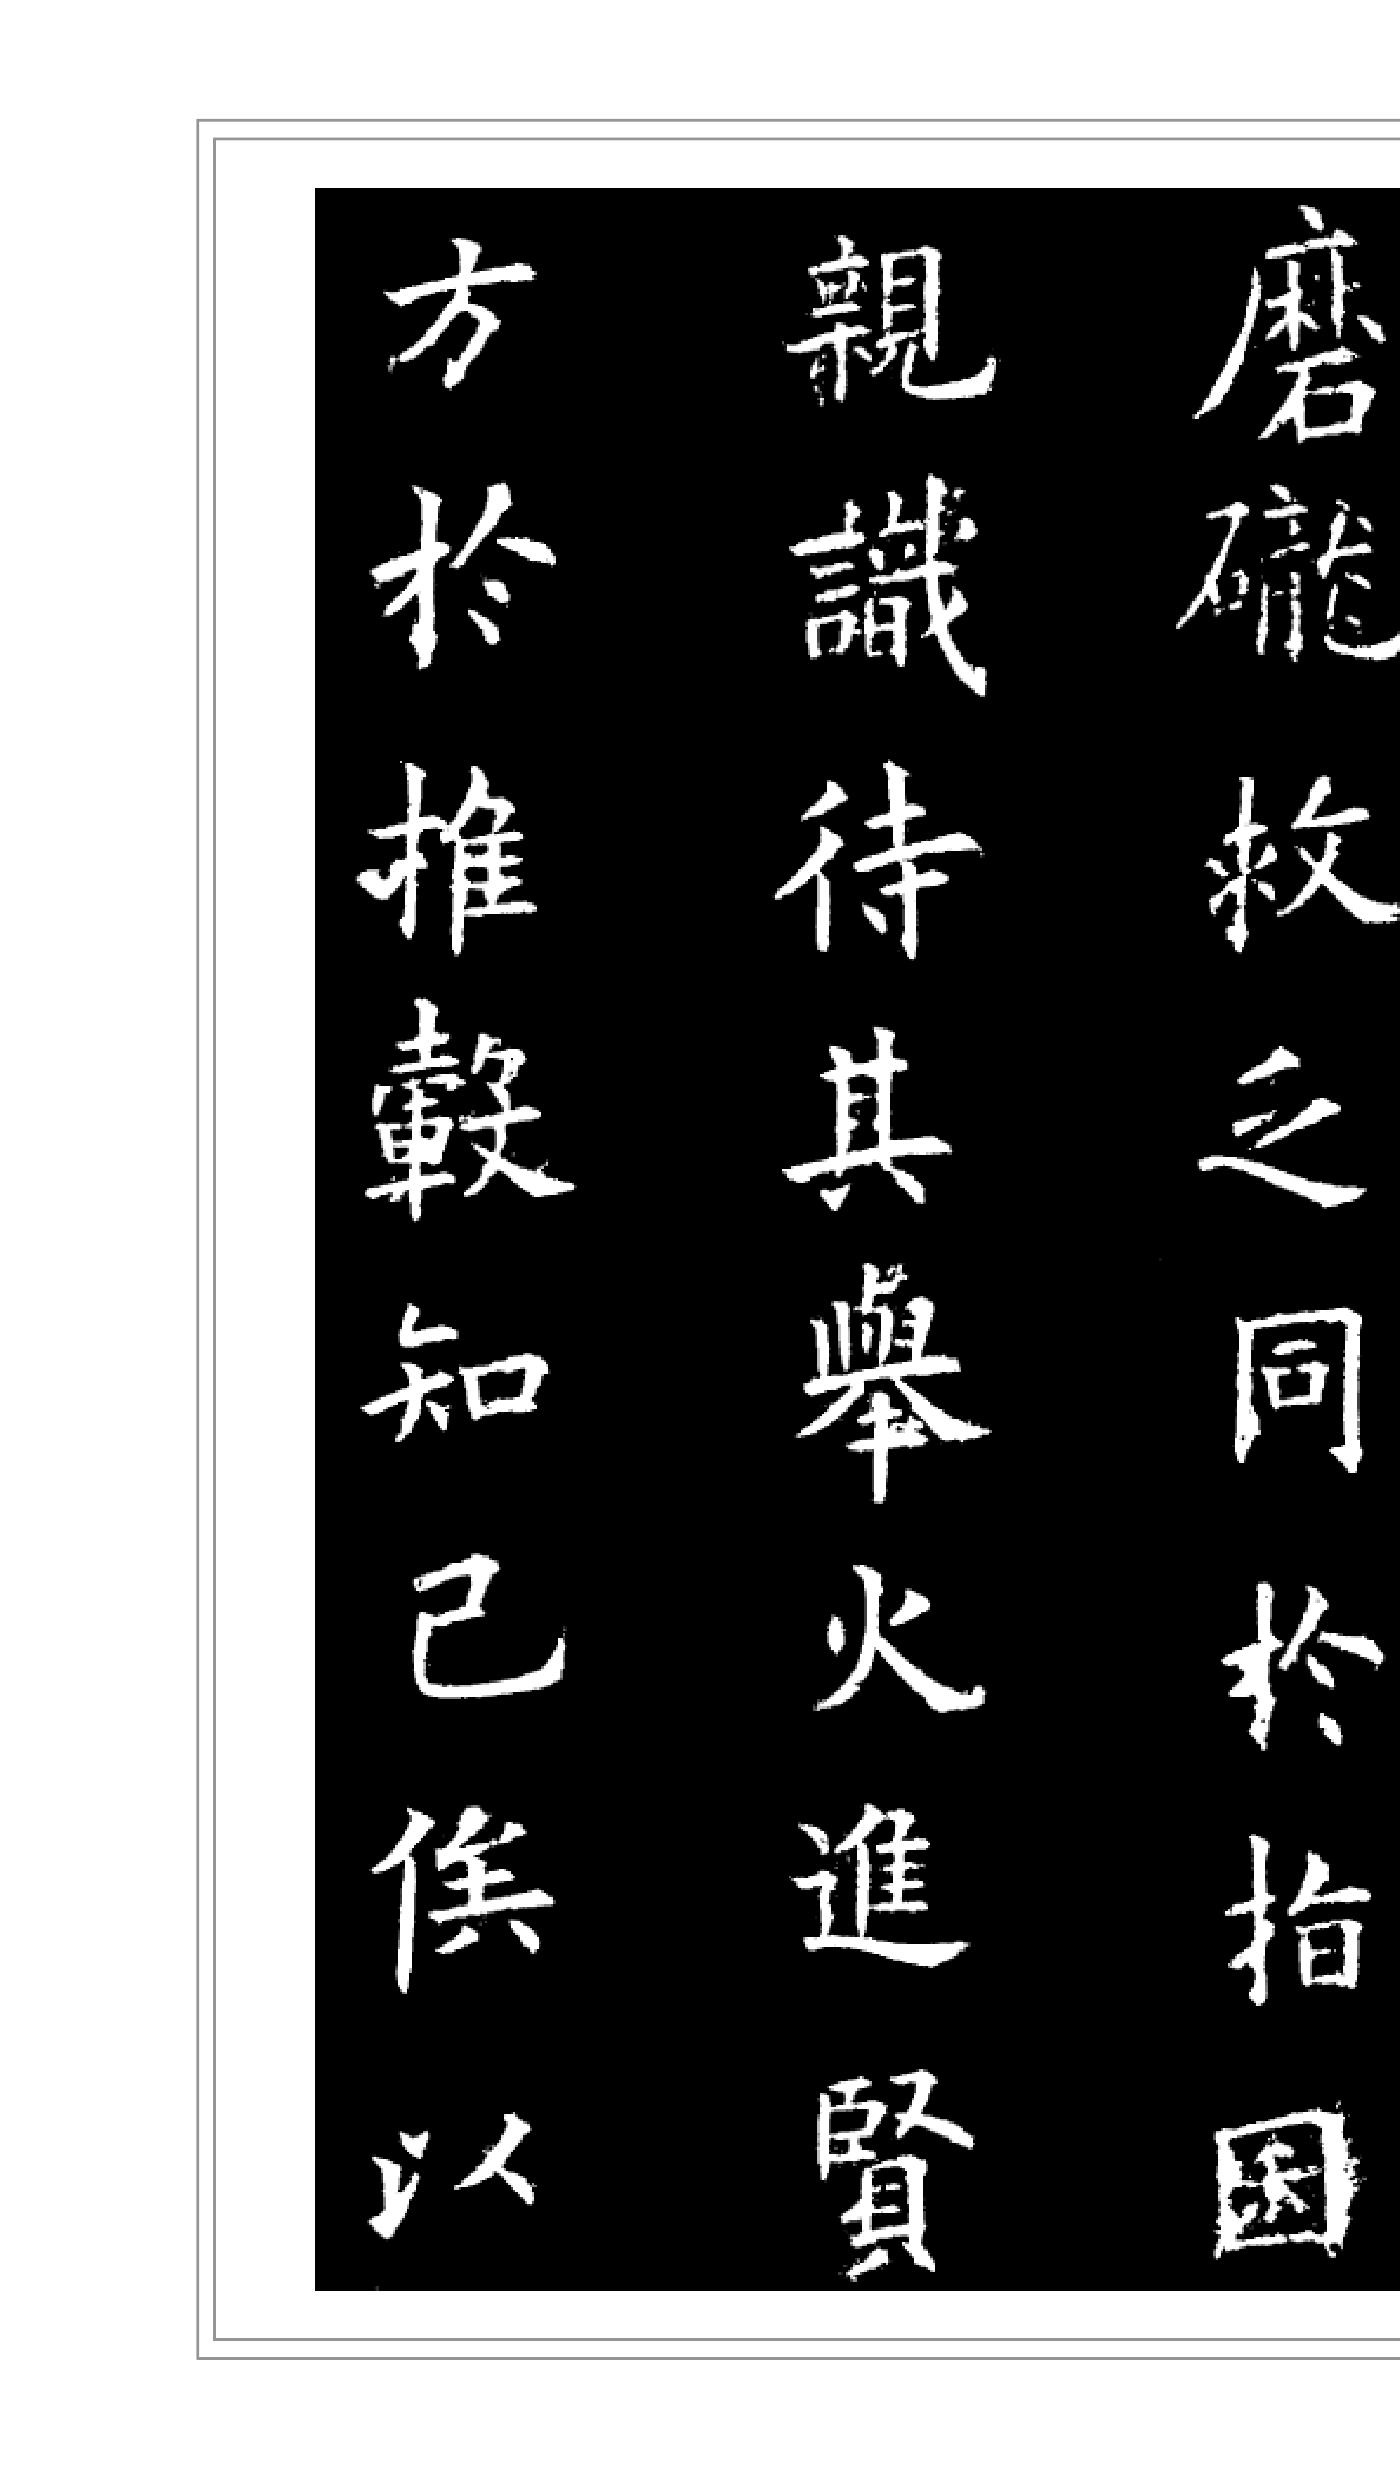 磨礲救乏同於指囷
親識待其舉火進賢
方於推轂知己俟以